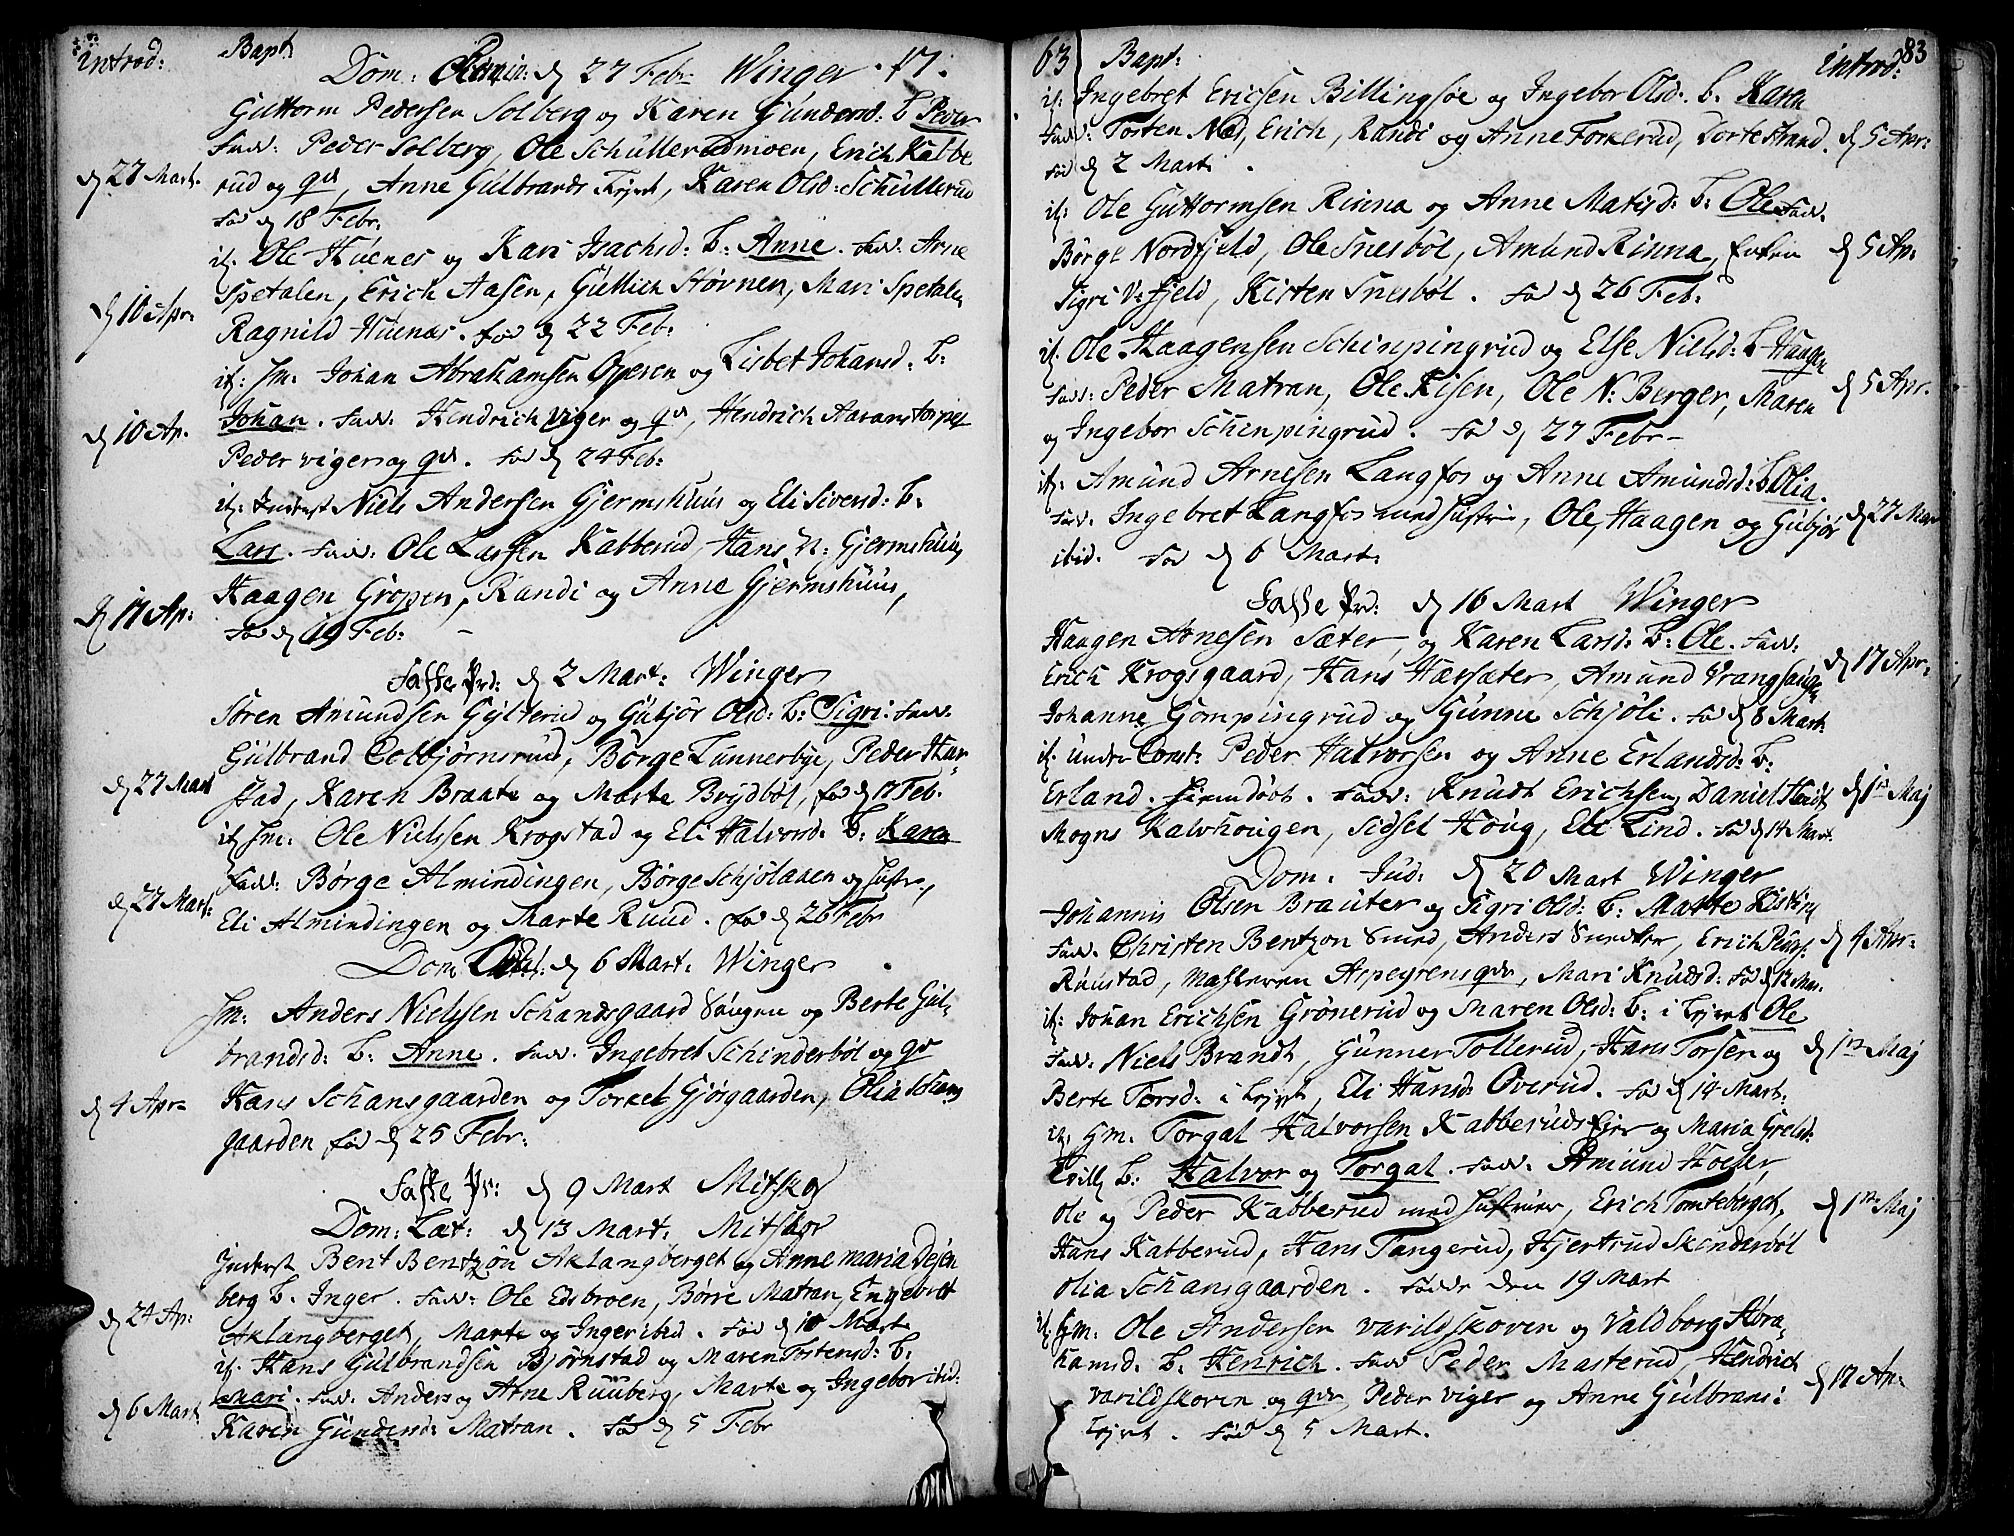 introd: Bapt:
Dom: Remin: d 27 Febr Winger. 17.
Guttorm Pedersen Solberg og Karen Gunders: b. Peder
Fadd: Peder Solberg, Ole Schullerudmoen, Erich Kabbe
d 27 Mart. rud og qv, Anne Gulbrands Lejret, Karen Olsd: Schullerud
Fød d 18 Febr.
it. Ole Huenes og Kari Isachsd: b: Anne. Fadd: Arne
Spetalen, Erich Aasen, Gullich Støvnen, Mari Spetalen
d 10 Apr: Ragnild Huenæs. Fød d 22 Feb:
it: Sm: Johan Abrahamsen Operen og Lisbet Johansd: b:
d 10 Ap. Johan. Fadd: Hendrich Viger og qv, Hendrich Aaranstorpet
Peder Viger og qv. Fød d 24 Feb:
it: Inderst Niels Andersen Gjermshuus og Eli Siversd: b:
Lars. Fadd: Ole Larssen Kabberud, Hans N: Gjermshuus,
d 17 Ap: Haagen Gropen, Randi og Anne Gjermshuus,
Fød d 19 Feb:
Faste Prd: d 2 Mart: Winger
Søren Amundsen Gylterud og Gubjør Olsd: b: Sigri: Fadd:
Gulbrand Colbjørnsrud, Børge Lunnerbye, Peder Har-
d 27 Mart stad, Karen Braate og Marte Brydbøl, fød d 17 Feb.
it Sm: Ole Nielssen Krogstad og Eli Halvorsd: b: Karen
Fadd: Børge Almindingen, Børge Schjølaaen og Hustr.,
d 27 Mart: Eli Almindingen og Marte Ruud. fød d 26 Febr
Dom Ocul: d 6 Mart: Winger
Sm: Anders Nielssen Schansgaard Sangen og Berte Gul-
brandsd: b: Anne. Fadd. Ingebret Schinderbøl og qv
d 4 Apr Hans Schansgaarden og Torkel Gjørgaarden, Olia Schans
gaarden fød d 25 Febr:
Faste Pr: d 9 Mart Mitskog
Dom: Læt: d 13 Mart: Mitskov
Inderst Bent Bentzøn Aklangberget og Anne Maria Dejen
berg b. Inger. Fadd: Ole Edsbroen, Børre Matran, Engebret
d 24 Ap: Aklangberget, Marte og Inger ibid. Fød d 10 Marte
it. Hans Gulbrandsen Bjørnstad og Maren Tostensd: b:
Mari. Fadd: Anders og Arne Ruuberg, Marte og Ingebor ibid:
d 6 Mart Karen Gundersd: Matran. Fød d 5 Febr
63 Bapt: introd: 83
it: Ingebret Erichsen Billingsøe og Ingebor Olsd: b. Karen
Fadd: Tosten Næd, Erich, Randi og Anne Forkerud, Dorte Strand. d 5 Apr:
Fød d 2 Mart.
it: Ole Guttormsen Rinna og Anne Matisd: b: Ole Fadd:
Børge Nordfjeld, Ole Snesbøl, Amund Rinna, d 5 Ap:
Sigri V: fjeld, Kirsten Snesbøl. Fød d 26 Feb:
it. Ole Haagensen Schinpingrud og Else Nielsd: b Haagen
Fadd: Peder Matran, Ole Kisen, Ole N: Berger, Maren d 5 Apr.
og Ingebor Schinpingrud. Fød d 27 Febr
it: Amund Arnesen Langfos og Anne Amundsd: b Olia.
Fadd: Ingebret Langfos med Hustrue, Ole, Haagen og Gubjør d 27 Mar
ibid. Fød d 6 Mart:
Faste Prd: d 16 Mart Winger
Haagen Arnesen Sæter, og Karen Larsd: b: Ole. Fadd:
Erich Krogsgaard, Hans Hassæter, Amund Vrangsaug d 17 Apr:
Johanne Gompingrud og Gunne Schjøli. Fød d 8 Mart:
it. under Const: Peder Halvorsen og Anne Erlandsd: b:
Erland. hiemdøbt. Fadd: Knudt Erichsen, Daniel d 1ste Maj
Mogns Kalvhougen, Sidsel Houg, Eli Lind. Fød d 14 Mart.
Dom. Jud: d 20 Mart Winger
Johannis Olsen Brauter og Sigri Olsd: b: Matte Kistine
Fadd. Christen Bentzon Smed, Anders, Erich d 4 Apr:
Ruustad, Masteren Aspegrens qv, Mari Knudsd: Fød d 12 Mar.
it: Johan Erichsen Grønerud og Maren Olsd: b: i Lejret Ole
Fadd: Niels Brandt, Gunner Tollerud, Hans Torsen og d 1ste Maj
Berte Torsd: i Lejret, Eli Hansd: Overud. Fød d 14 Mart:
it. Gm. Torgal Halvorsen Kabberudsejer og Maria Grelsd:
tvill b: Halvor og Torgal. Fadd: Amund Hoelser,
Ole og Peder Kabberud med Hustruer, Erich Tomteberget, d 1ste Maj
Hans Kabberud, Hans Tangerud, Hjertrud Skinderbøl
Olia Schansgaarden. Fødde den 19 Mart
it. Gm: Ole Andersen Varildskoven og Valdborg Abra-
hamsd. b: Henrich. Fadd Peder Masterud, Hendrich
Varildskoven og qv, Peder Viger og Anne Gulbrans: d 17 Ap:
Lejret. Fød d 5 Mart.